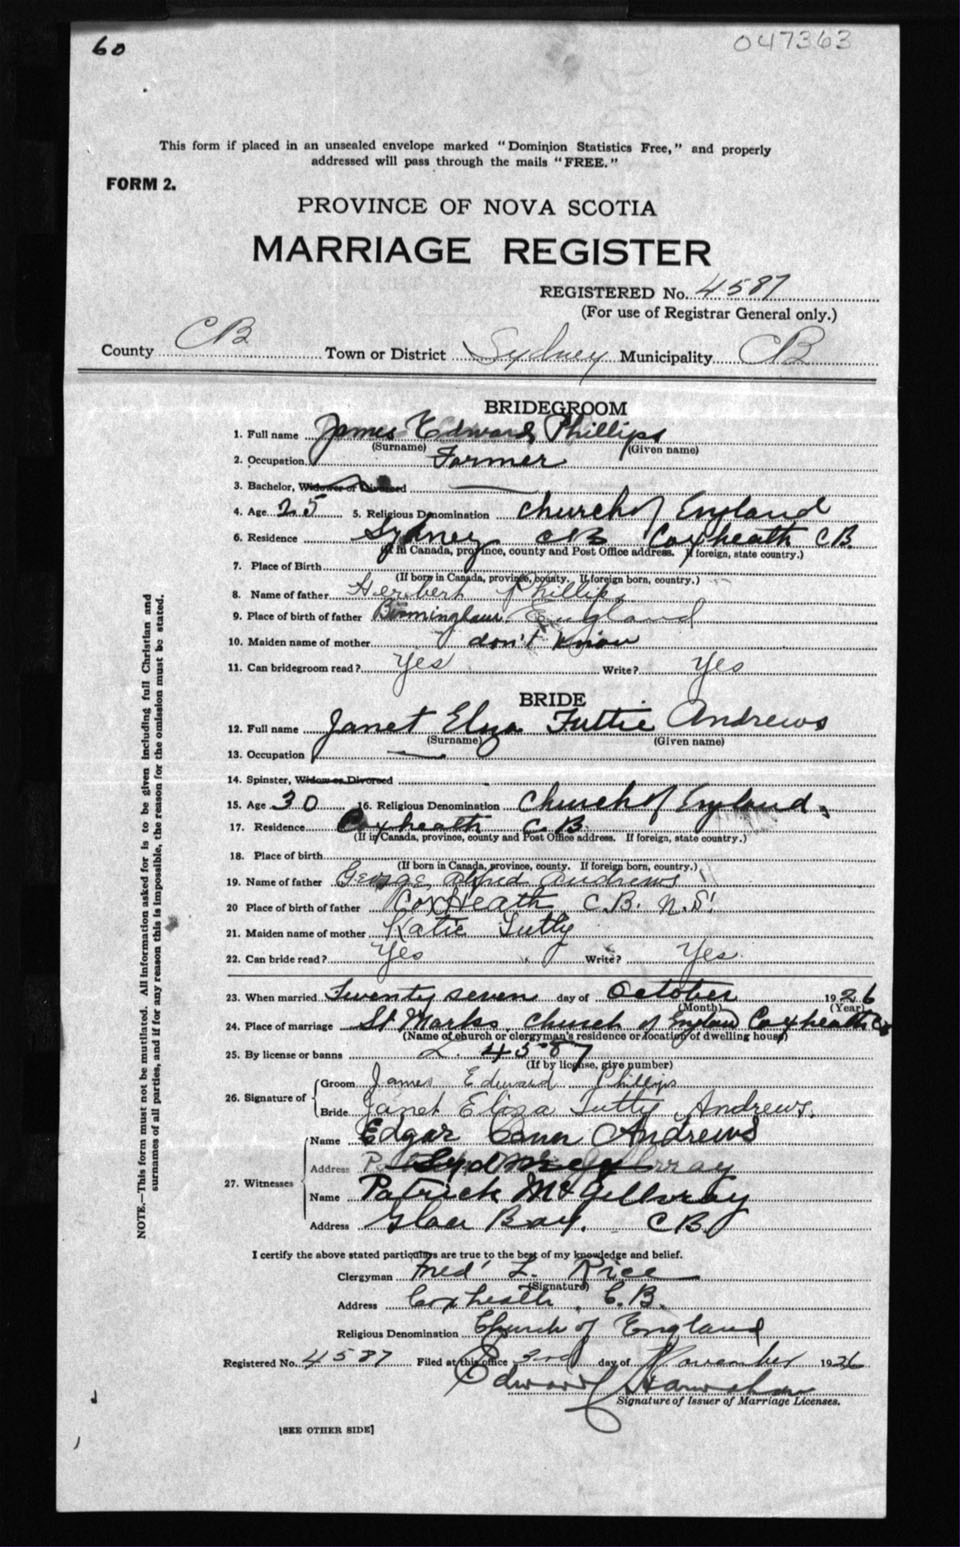 60
047363
This form if placed in an unsealed envelope marked "Dominion Statistics Free," and properly
addressed will pass through the mails "FREE."
FORM 2.
PROVINCE OF NOVA SCOTIA
MARRIAGE REGISTER
REGISTERED No. 4587
(For use of Registrar General only.)
County CB Town or District Sydney Municipality CB
BRIDEGROOM
1. Full name James Edward Phillips
(Surname) (Given name)
2. Occupation Farmer
3. Bachelor, Widower or Divorced
4. Age 25 5. Religious Denomination Church of England
6. Residence Sydney CB Coxheath C.B.
(If in Canada, province, county and Post Office address. If foreign, state country.)
7. Place of Birth
(If born in Canada, province, county. If foreign born, country.)
8. Name of father Herbert Phillips
9. Place of birth of father Birmingham England
10. Maiden name of mother don't know
11. Can bridegroom read? Yes Write? Yes
BRIDE
12. Full name Janet Eliza Tuttie Andrews
(Surname) (Given name)
13. Occupation
14. Spinster, Widow or Divorced
15. Age 30 16. Religious Denomination Church of England,
17. Residence Coxheath C.B
(If in Canada, province, county and Post Office address. If foreign, state country.)
18. Place of birth
(If born in Canada, province, county. If foreign born, country.)
19. Name of father George Alfred Andrews
20 Place of birth of father CoxHeath C.B. N.S.
21. Maiden name of mother Katie Tutty
22. Can bride read? Yes Write? Yes.
23. When married Twenty seven day of October 1926
(Month) (Year)
24. Place of marriage St Marks, Church of England Coxheath CB
(Name of church or clergyman's residence or location of dwelling house)
25. By license or banns L. 4587
(If by license, give number)
26. Signature of Groom James Edward Phillips
Bride Janet Eliza Tutty Andrews.
27. Witnesses Name Edgar Andrews
Address Sydney
Name Patrick McGillvray
Address Glace Bay. C.B.
I certify the above stated particulars are true to the best of my knowledge and belief.
Clergyman Fred' L. Rice
(Signature)
Address Coxheath, C.B.
Religious Denomination Church of England
Registered No. 4587 Filed at this office 3rd day of November 1926
Edward
Signature of Issuer of Marriage Licenses.
[SEE OTHER SIDE]
NOTE.—This form must not be mutilated. All information asked for is to be given including full Christian and
surnames of all parties, and if for any reason this is impossible, the reason for the omission must be stated.